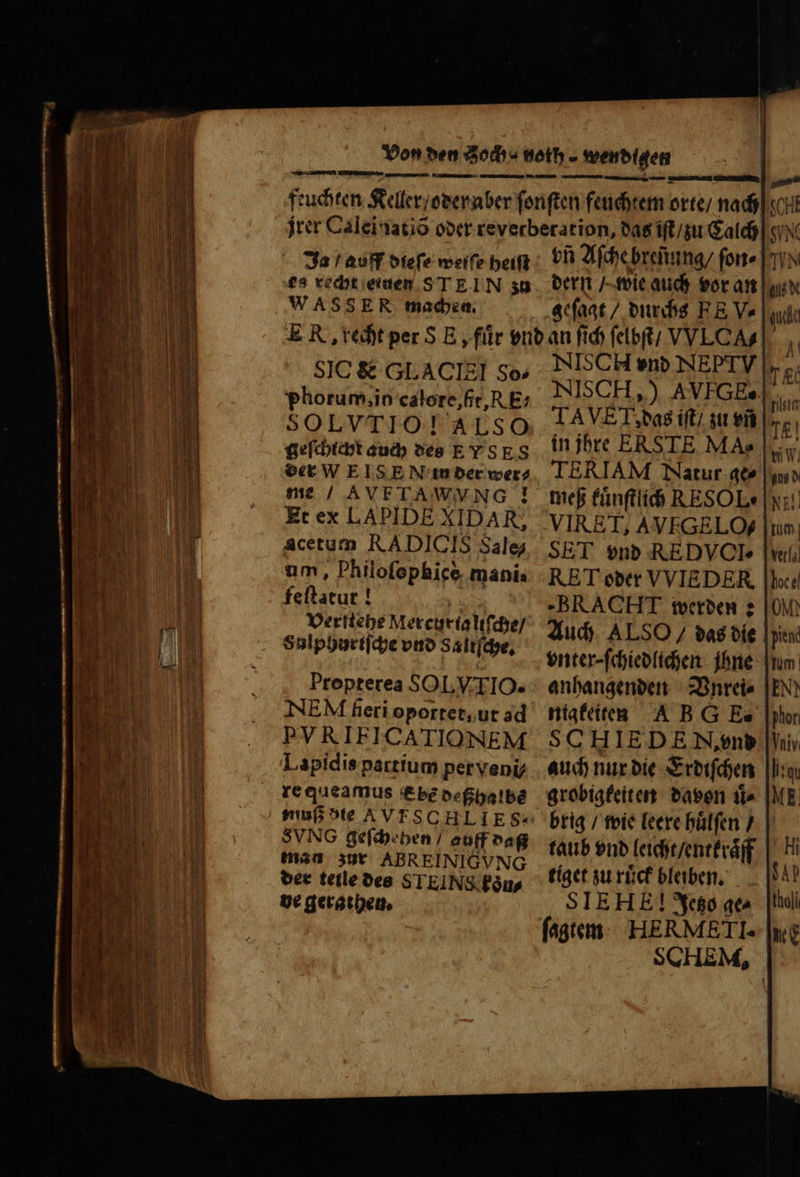 Von den Hoch⸗noth⸗wendigen
feuchten Keller/oder aber ſonſten feuchtem orte/ nach
jrer Calcinatiō oder reverberation, das iſt/zu Calch
Ja / auff dieſe weiſe heiſt
es recht einen STEIN zu
WASSER machen.
vñ Aſchebreñung/ ſon⸗
dern / wie auch vor an
geſagt / durchs FEV⸗
ER, recht per SE, fuͤr vnd an ſich ſelbſt/ VVLCA⸗
SIC & GLACIEI So⸗
phorum, in calore, fit, RE⸗
SOLVTIO! ALSO
geſchicht auch des EYSES
der WEISEN in der wer⸗
me / AVFTAWVNG !
Et ex LAPIDE XIDAR,
acetum RADICIS Sale⸗
um, Philoſophicè mani⸗
feſtatur !
Verſtehe Mercurialiſche/
Sulphuriſche vnd Saltſche.
Propterea SOLVTIO⸗
NEM fieri oportet, ut ad
PVRIFICATIONEM
Lapidis partium perveni⸗
re queamus Ebē deßhalbē
muß die AVFSCHLIES⸗
SVNG geſchehen / auff daß
man zur ABREINIGVNG
der teile des STEINS koͤn⸗
ne gerathen.
NISCH vnd NEPTV
NISCH,) AVFGE⸗
TAVET, das iſt/ zu vñ
in jhre ERSTE MA⸗
TERIAM Natur ge⸗
meß kuͤnſtlich RESOL⸗
VIRET, AVFGELO⸗
SET vnd REDVCI⸗
RET oder VVIEDER
⸗BRACHT werden :
Auch ALSO / das die
vnter-ſchiedlichen jhne
anhangenden Vnrei⸗
nigkeiten ABGE⸗
SCHIEDEN, vnd
auch nur die Erdiſchen
grobigkeiten davon uͤ⸗
brig / wie leere huͤlſen /
taub vnd leicht/entkraͤff
tiget zu ruͤck bleiben.
SIEHE! Jetzo ge⸗
ſagtem HERMETI⸗
SCHEM,